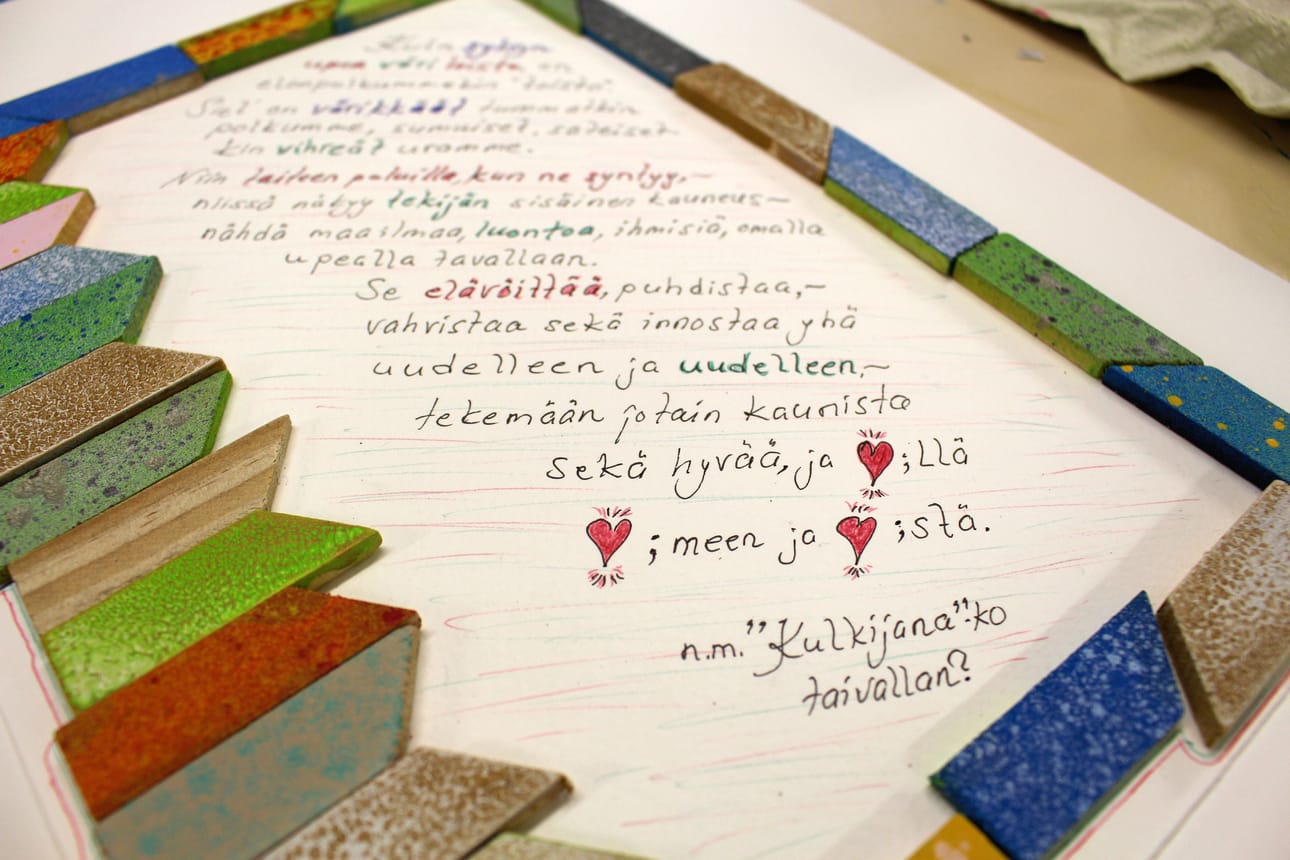 Kuin syntyy
upea väri loista on
elonpolkummekin "taista".
Siel' on värikkäät tummatkin
polkumme, sumuiset, sateiset
kin vihreät uramme.
Niin taiteen poluilla, kun ne syntyy,~
niissä näkyy tekijän sisäinen kauneus~
nähdä maailmaa, luontoa, ihmisiä, omalla
upealla tavallaan.
Se elävöittää, puhdistaa,~
vahvistaa sekä innostaa yhä
uudelleen ja uudelleen,~
tekemään jotain kaunista
sekä hyvää, ja ♥;llä
♥;meen ja ♥;stä.
n.m. "Kulkijana"-ko
taivallan?